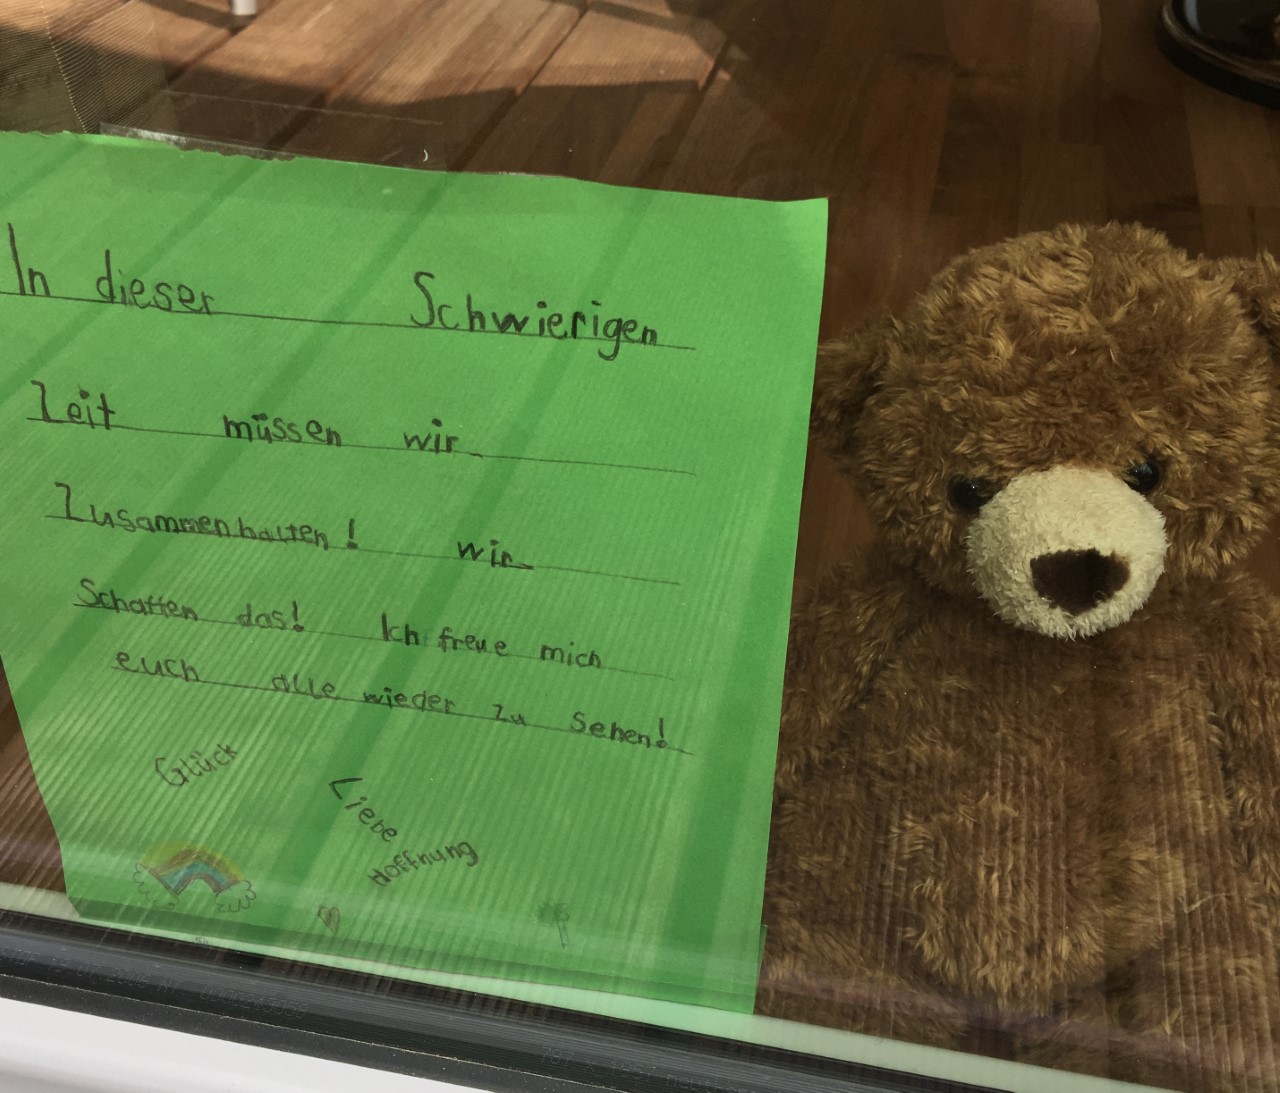 In dieser Schwierigen
Zeit müssen wir
Zusammenhalten! wir
Schaffen das! Ich freue mich
euch alle wieder zu Sehen!
Glück
Liebe
Hoffnung